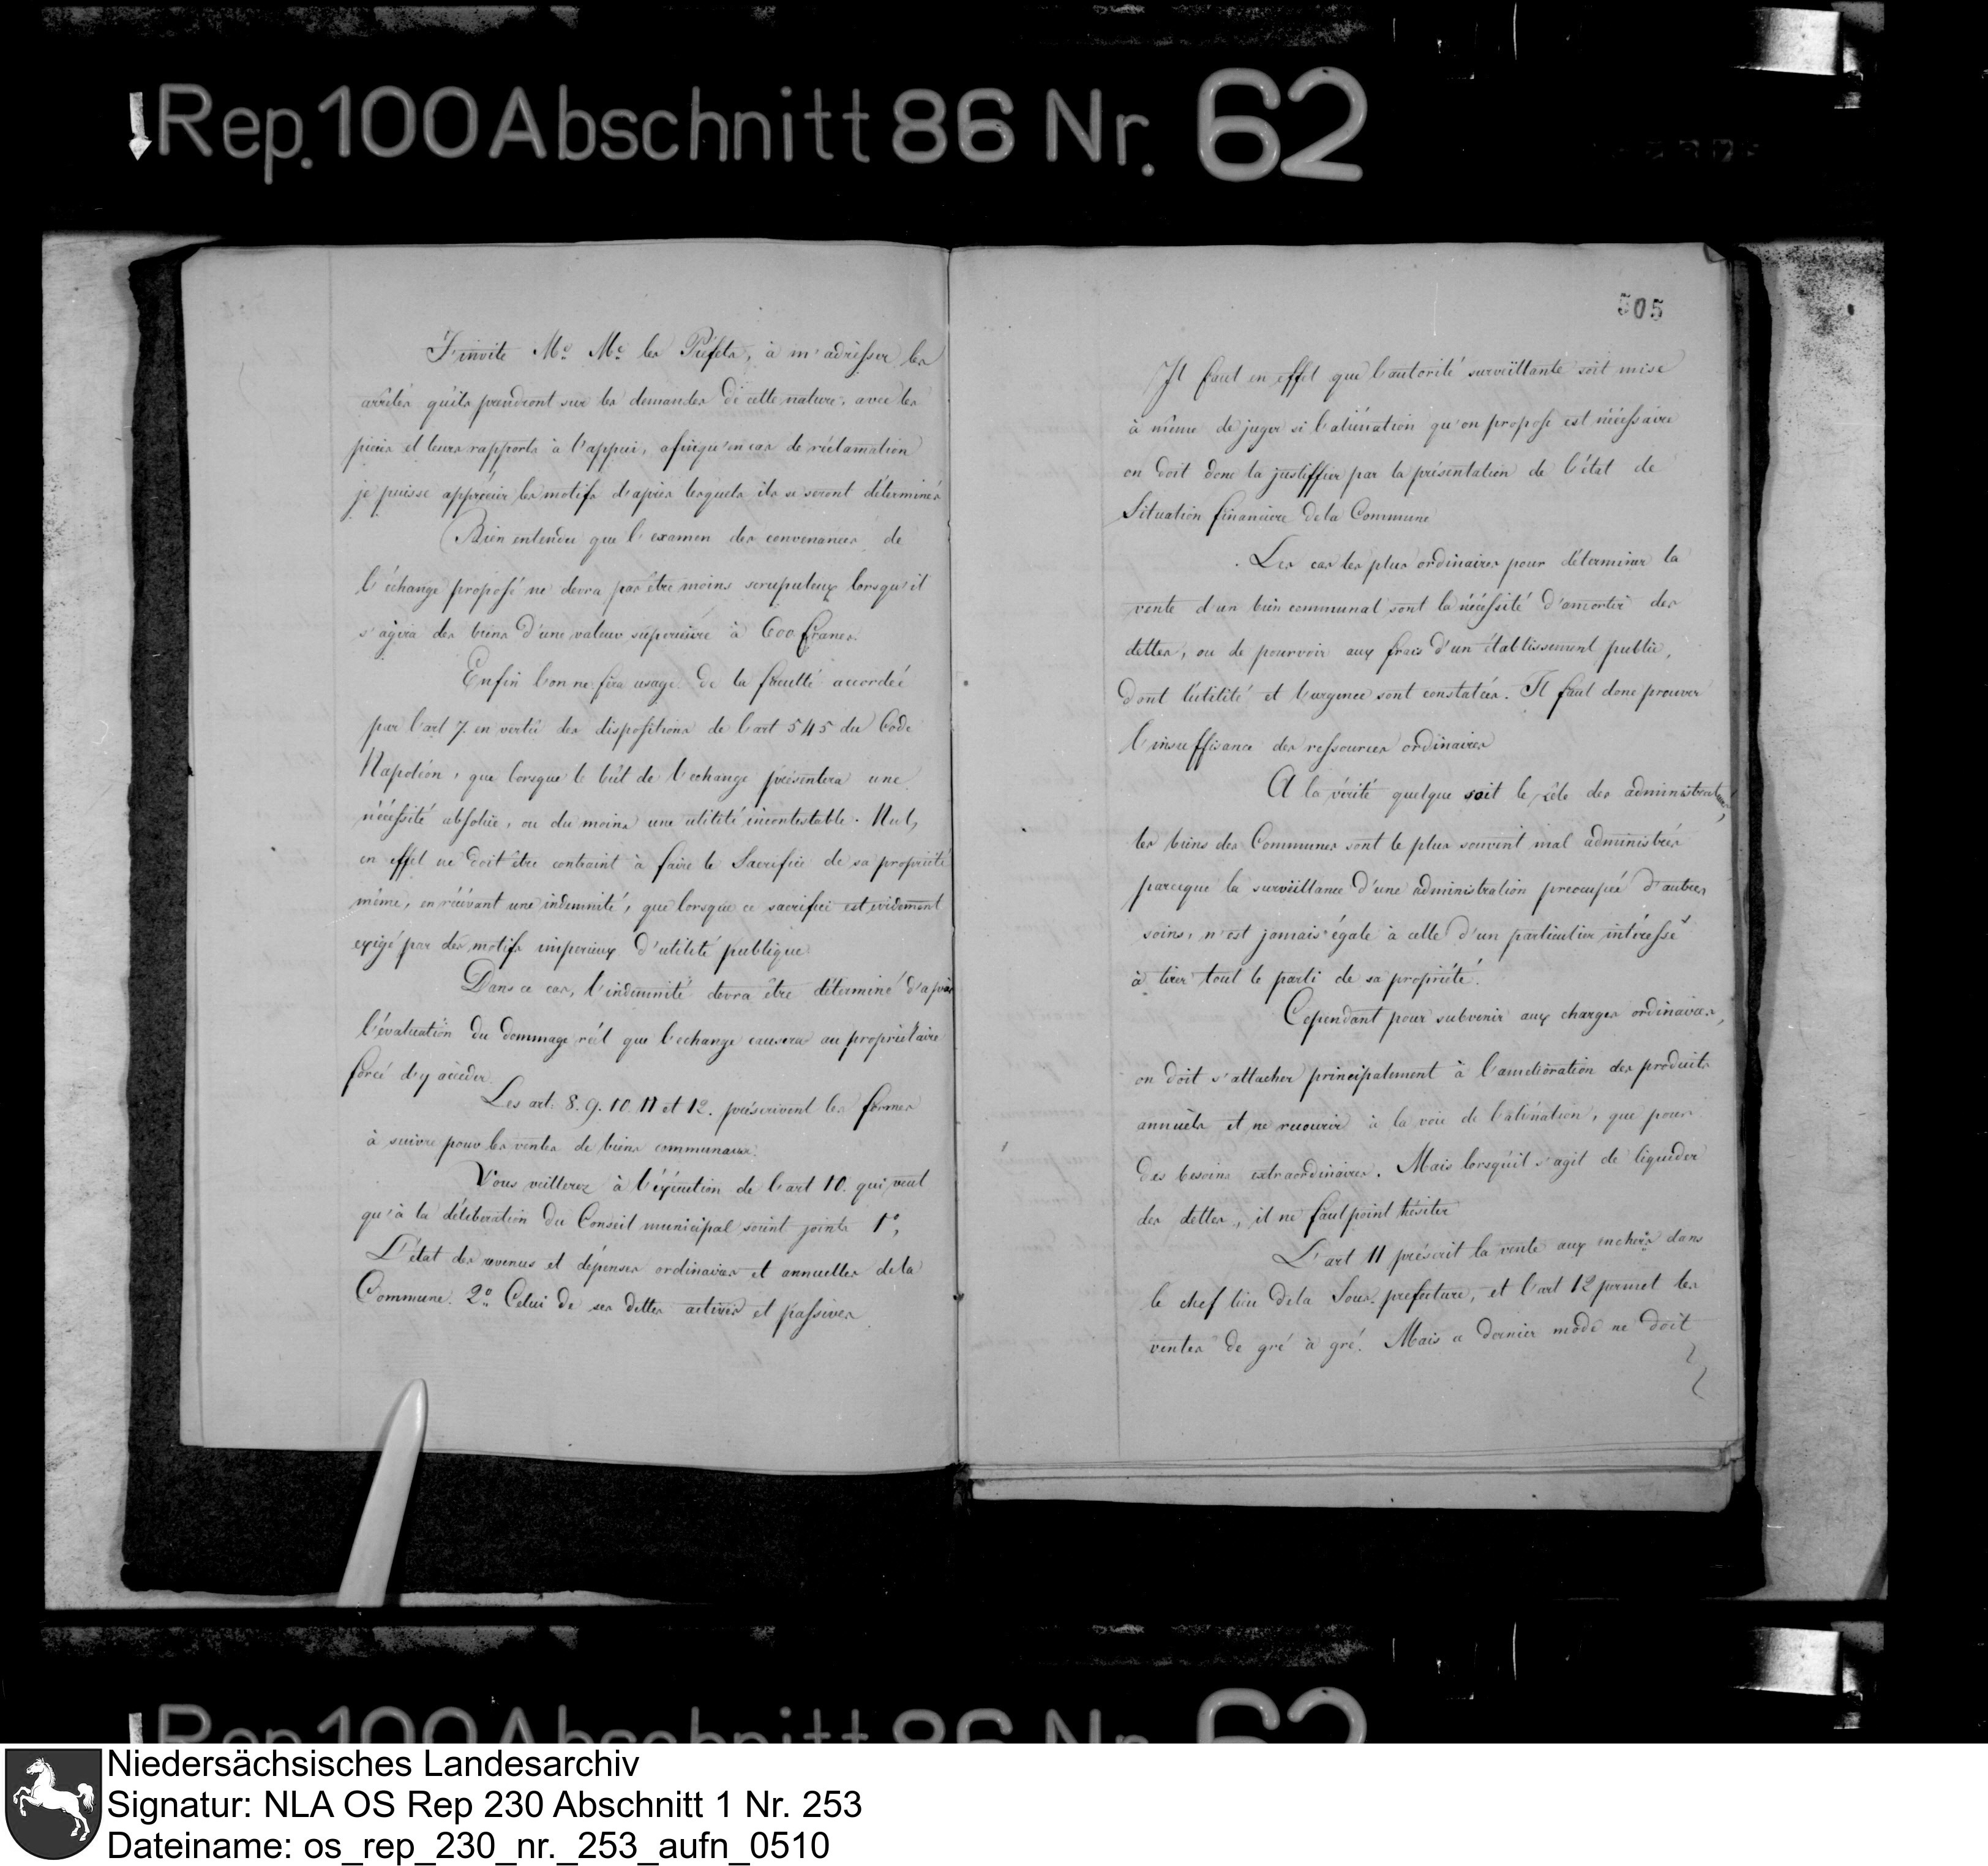 Rep. 100 Abschnitt 86 Nr. 62
J'invite Mrs. Mrs. les Préfets, à m'adresser les
arrêtés qu'ils prendront sur les demandes de cette nature, avec les
pièces et leurs rapports à l'appui, afin qu'en cas de réclamation
je puisse apprécier les motifs d'après lesquels ils se seront déterminés
Bien entendu que l'examen des convenances de
l'échange proposé ne devra pas être moins scrupuleux lorsqu'il
s'agira des biens d'une valeur supérieure à 600 francs.
Enfin l'on ne fera usage de la faculté accordée
par l'art 7. en vertu des dispositions de l'art 545 du Code
Napoléon, que lorsque le bût de l'echange présentera une
nécéssité absolue, ou du moins une utilité incontestable. Nul,
en effet ne doit être contraint à faire le Sacrifice de sa propriété
même, en récévant une indemnité, que lorsque ce sacrifice est evidement
exigé par des motifs imperieux d'utilité publique.
Dans ce cas, l'indemnité devra être déterminé d'après
l'évaluation du dommage réel que l'echange causera au propriétaire
forcé d'y accéder.
Les art. 8. 9. 10. 11 et 12. préscrivent les formes
à suivre pour les ventes de biens communaux.
Vous veillerez à l'éxécution de l'art 10. qui veut
qu'à la déliberation du Conseil municipal soient joints 1°,
L'état des revenus et dépenses ordinaires et annuelles dela
Commune. 2° Celui de ses dettes actives et passives
505
Il faut en effet que l'autorité surveillante soit mise
à même de juger si l'aliénation qu'on propose est nécéssaire
on doit donc la justiffier par la présentation de l'état de
Situation financière dela Commune
Les cas les plus ordinaires pour déterminer la
vente d'un bien communal sont la nécéssité d'amortir des
dettes, ou de pourvoir aux frais d'un établissement public,
dont l'utilité et l'urgence sont constatées. Il faut donc prouver
l'insuffisance des ressources ordinaires
A la vérité quelque soit le zèle des administrateurs,
les biens des Communes sont le plus souvent mal administrés
parceque la surveillance d'une administration preocupée d'autres
soins, n'est jamais égale à celle d'un particulier intéressé
à tirer tout le parti de sa propriété.
Cependant pour subvenir aux charges ordinaires,
on doit s'attacher principalement à l'amélioration des produits
annuels et ne recourir à la voie de l'aliénation, que pour
des besoins extraordinaires. Mais lorsqu'il s'agit de liquider
des dettes, il ne faut point hésiter
L'art 11 préscrit la vente aux enchers dans
le chef lieu dela Sous-prefecture, et l'art 12 permet les
ventes de gré à gré. Mais ce dernier mode ne doit
Rep. 100 Abschnitt 86 Nr. 62
Niedersächsisches Landesarchiv
Signatur: NLA OS Rep 230 Abschnitt 1 Nr. 253
Dateiname: os_rep_230_nr._253_aufn_0510